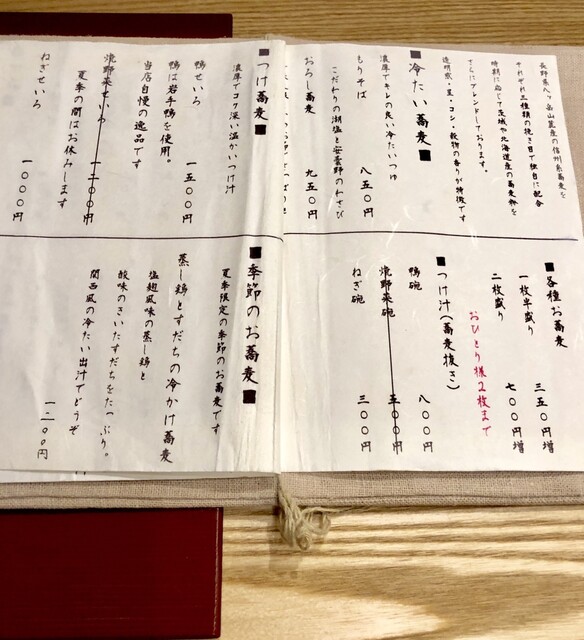 長野県八ヶ岳山麓産の信州系蕎麦を
それぞれ三種類の挽き目で独自に配合
時期に応じて茨城や北海道産の蕎麦粉を
さらにブレンドしております。
透明感・星・コシ・穀物の香りが特徴です
■冷たい蕎麦■
濃厚でキレの良い冷たいつゆ
もりそば 八五〇円
こだわりの湖塩と安曇野のわさび
おろし蕎麦 九五〇円
■つけ蕎麦■
濃厚でコク深い温かいつけ汁
鴨せいろ 一五〇〇円
鴨は岩手鴨を使用。
当店自慢の逸品です
焼野菜せいろ 一二〇〇円
夏季の間はお休みします
ねぎせいろ 一〇〇〇円
■各種お蕎麦
一枚半盛り 三五〇円増
二枚盛り 七〇〇円増
おひとり様2枚まで
■つけ汁(蕎麦抜き)
鴨碗 八〇〇円
焼野菜碗 五〇〇円
ねぎ碗 三〇〇円
■季節のお蕎麦■
夏季限定の季節のお蕎麦です
蒸し鶏とすだちの冷かけ蕎麦
塩麹風味の蒸し鶏と
酸味のきいたすだちをたっぷり。
関西風の冷たい出汁でどうぞ
一二〇〇円